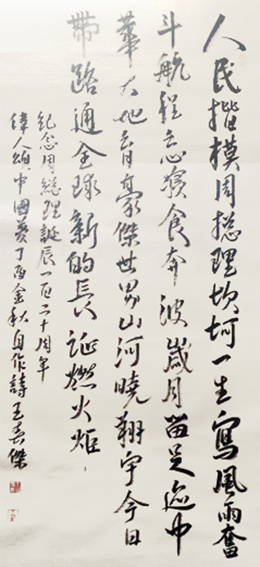 人民楷模周总理坎坷一生写风雨奋
斗航程忘寝食奔波岁月留足迹中
華大地育豪傑世界山河曉翔宇今日
帶路通全球新的長征燃火炬
紀念周總理誕辰一百二十周年
偉人頌中國夢丁酉金秋自作詩王春傑